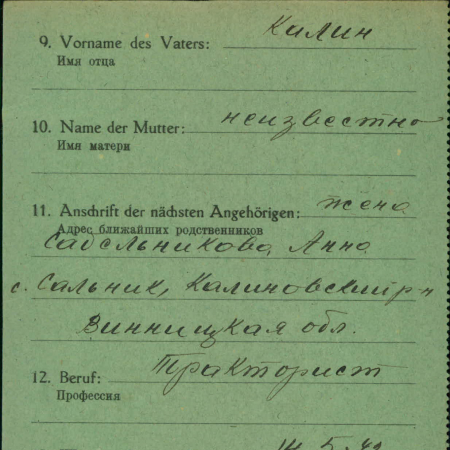 9. Vorname des Vaters: Калин
Имя отца
10. Name der Mutter: неизвестно
Имя матери
11. Anschrift der nächsten Angehörigen: жена
Адрес ближайших родственников
Сабельникова Анна
с. Сальник, Калиновский р-н
Винницкая обл.
12. Beruf: тракторист
Профессия